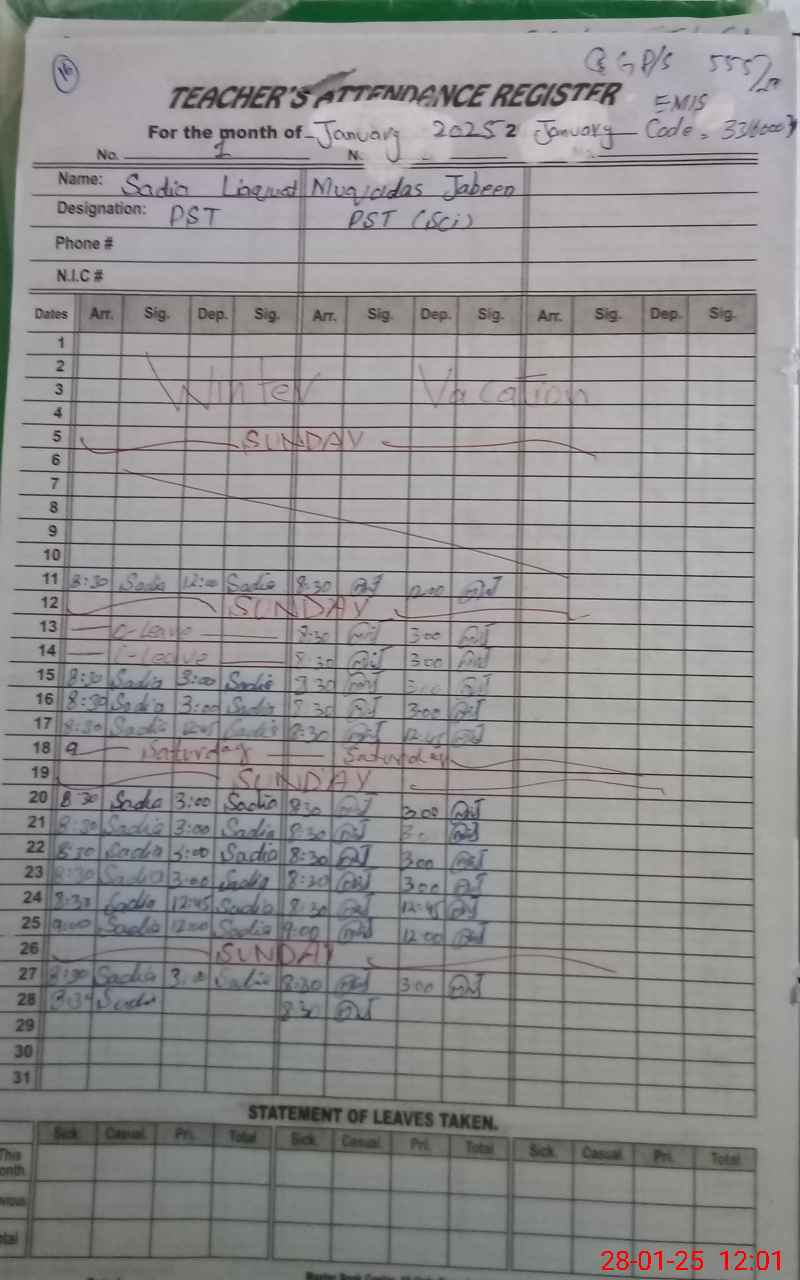 16
GP/S 555/
TEACHER'S ATTENDANCE REGISTER
EMIS
For the month of January 2025 2 January Code.
No. 1 N.
Name: Sadia Muqadas Jabeen
Designation: PST PST (Sci)
Phone #
N.I.C #
Dates Arr. Sig. Dep. Sig. Arr. Sig. Dep. Sig. Arr. Sig. Dep. Sig.
1
2
3 Winter Vacation
4
5 SUNDAY
6
7
8
9
10
11 8:30 Sadia 12:00 Sadia 8:30 12:00
12 SUNDAY
13 C-Leave 8:30 3:00
14 C-Leave 8:30 3:00
15 8:30 Sadia 3:00 Sadia 8:30 3:00
16 8:30 Sadia 3:00 Sadia 8:30 3:00
17 8:30 Sadia 12:45 Sadia 8:30 12:45
18 Saturday Saturday
19 SUNDAY
20 8:30 Sadia 3:00 Sadia 8:30 3:00
21 8:30 Sadia 3:00 Sadia 8:30
22 8:30 Sadia 3:00 Sadia 8:30 3:00
23 8:30 Sadia 3:00 Sadia 8:30 3:00
24 8:30 Sadia 12:45 Sadia 8:30 12:45
25 9:00 Sadia 12:00 Sadia 9:00 12:00
26 SUNDAY
27 8:30 Sadia Sadia 8:30 3:00
28 Sadia 8:30
29
30
31
STATEMENT OF LEAVES TAKEN.
Sick Casual Pri. Total Sick Casual Pri. Total Sick Casual Pri. Total
This
onth
vious
otal
28-01-25 12:01